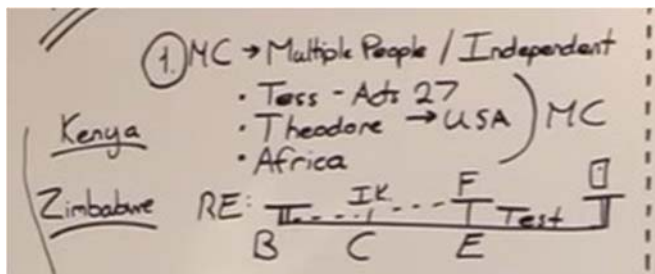 1. MC → Multiple People / Independent
• Tess - Acts 27
Kenya • Theodore → USA ) MC
• Africa
Zimbabwe RE: IK F Test
B C E